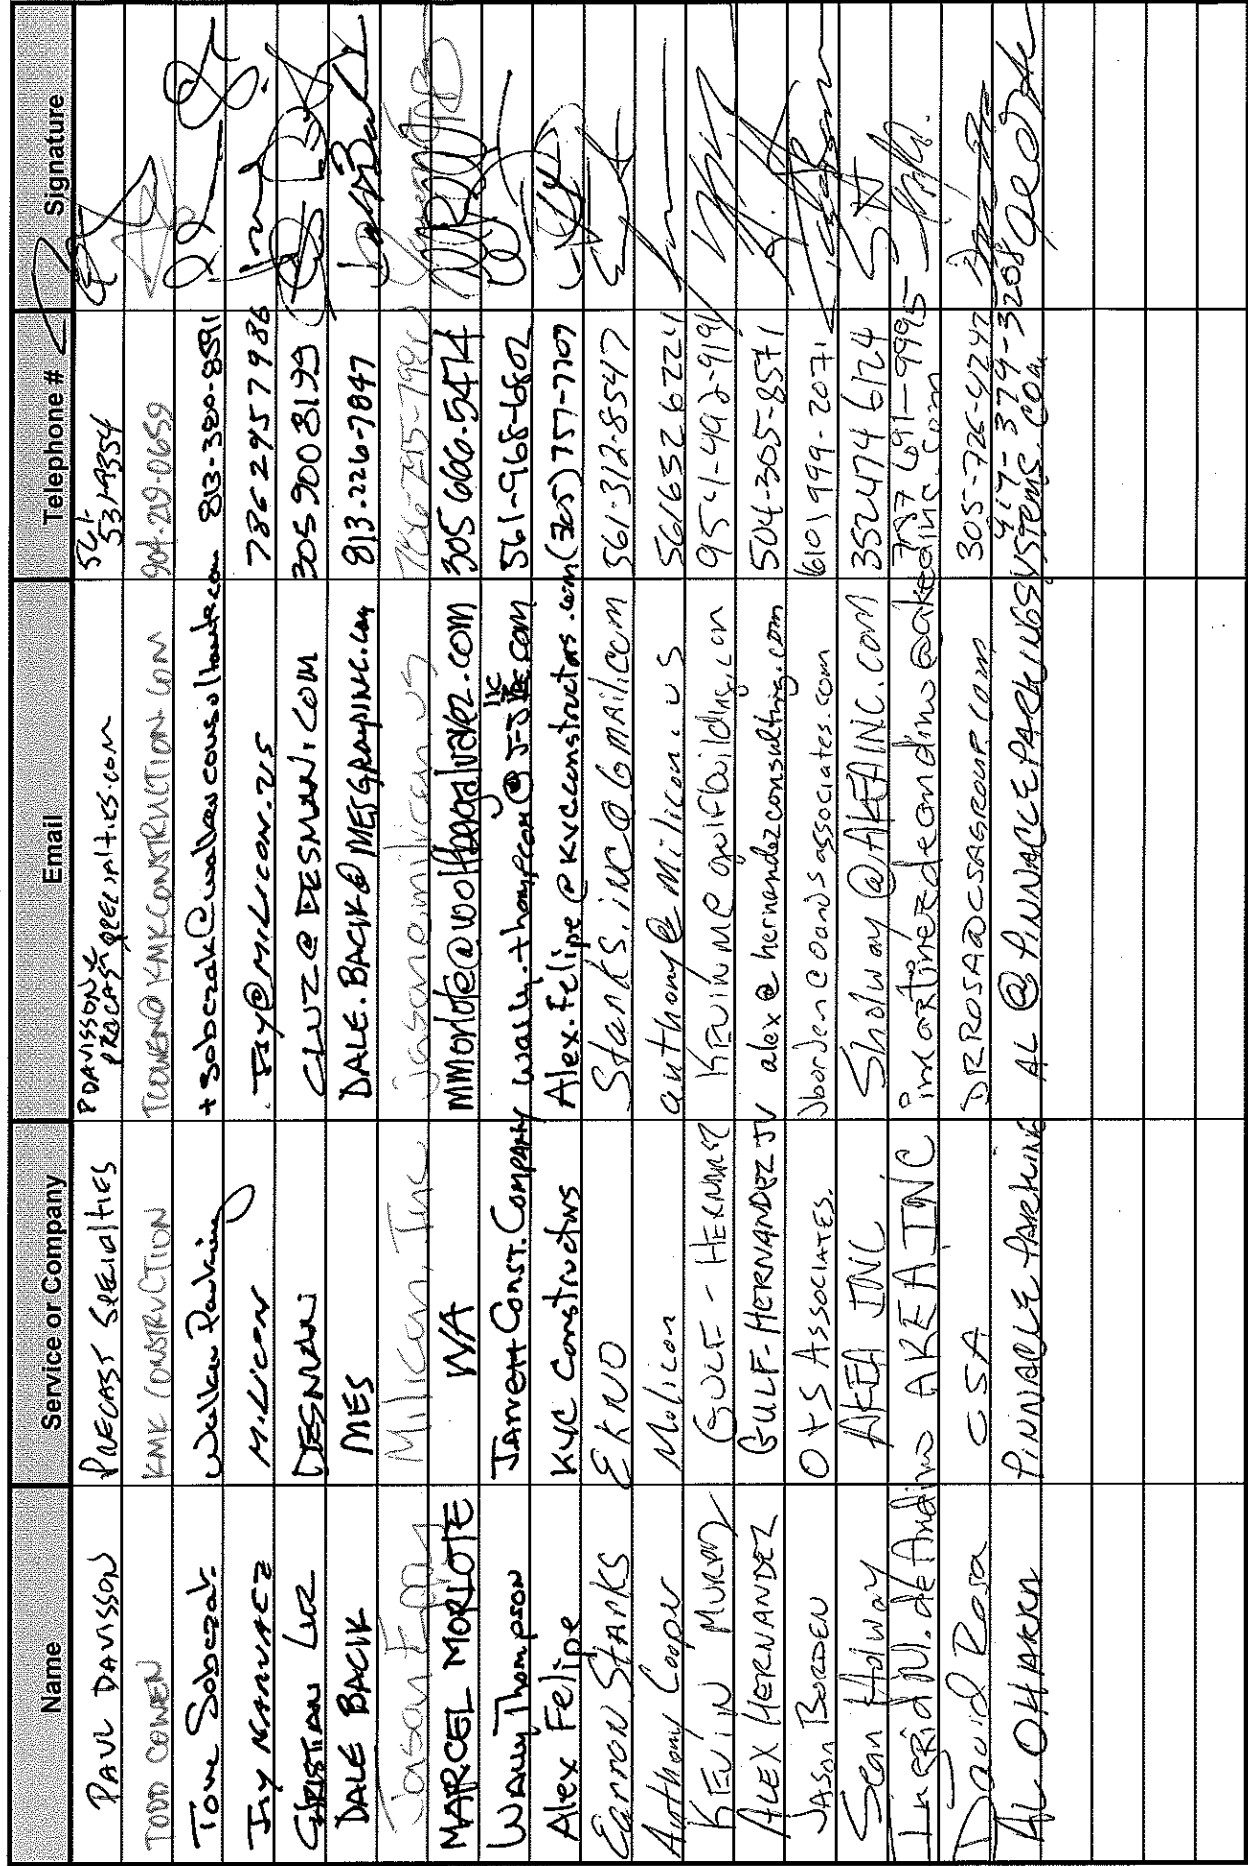 Name Service or Company Email Telephone # Signature
PAUL DAVISSON PRECAST SPECIALTIES PDAVISSON@ PRECASTSPECIALTIES.COM 561- 531-9354
TODD COWEN KMK CONSTRUCTION TCOWEN@KMKCONSTRUCTION.COM 904-219-0659
Tom Sobczak Walker Parking tsobczak@walkerconsultants.com 813-380-8591
MILICON Jay@MILICON.US 7862957986
CHRISTIAN LUZ DESMAN CLUZ@DESMAN.COM 305 900 8199
DALE BACIK MES DALE.BACIK@MESGROUPINC.COM 813-226-7847
Jason Milicon, Inc Jason@milicon.us
MARCEL MORLOTE WA MMorlote@wolfbergalvarez.com 305 666-5474
WALLY Thompson JARRETT CONST. COMPANY wally.thompson@ 561-968-6802
Alex Felipe KVC Constructors Alex.Felipe@kvcconstructors.com (305) 757-7707
Earron Stanks EKNO Stanks.inc@Gmail.com 561-312-8547
Anthony Cooper Milicon anthony@Milicon.us 5616326224
KEVIN MURPHY GULF - HERNANDEZ Kevinm@gulfbuilding.com 954-492-9191
ALEX HERNANDEZ GULF-HERNANDEZ JV alex@hernandezconsulting.com 504-305-8571
JASON BORDEN O+S ASSOCIATES. Jborden@oandsassociates.com (610) 999-2071
Sean Holway AKEA INC. Sholway@AKEAINC.com 352 474 6124
Ingrid M. de Andino AKEA INC imartinezdeandino@akeainc.com 787 691-9995
David Rosa CSA DROSA@CSAGROUP.COM 305-726-4247
AL OHARRA PINNACLE PARKING AL@PINNACLEPARKINGSYSTEMS.COM 417-379-3208